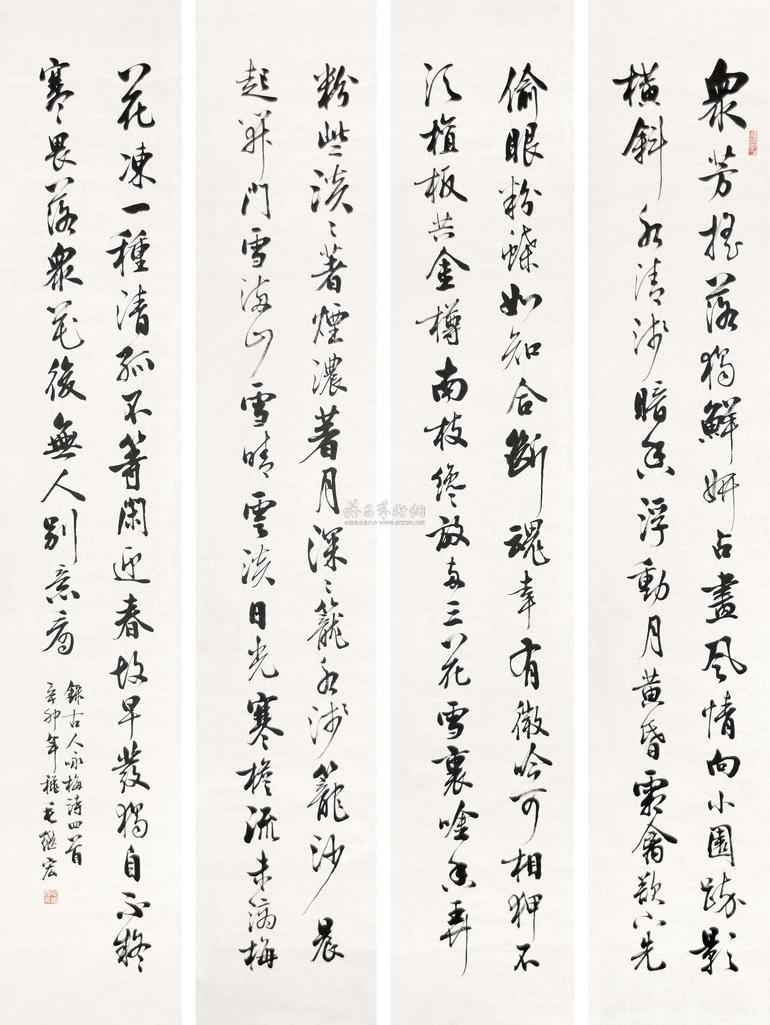 衆芳摇落獨鮮妍占盡風情向小園疎影
橫斜水清淺暗香浮動月黄昏霜禽欲下先
偷眼粉蝶如知合斷魂幸有微吟可相狎不
須檀板共金樽南枝纔放兩三花雪裏吟香弄
粉些淡〻著煙濃著月深〻籠水淺籠沙晨
起開門雪滿山雪晴雲淡日光寒檐流未滴梅
花凍一種清孤不等閑迎春故早發獨自不疑
寒畏落衆花後無人别意看
錄古人咏梅詩四首
辛卯年穐毛继宏
雅昌藝術網
www.artron.net